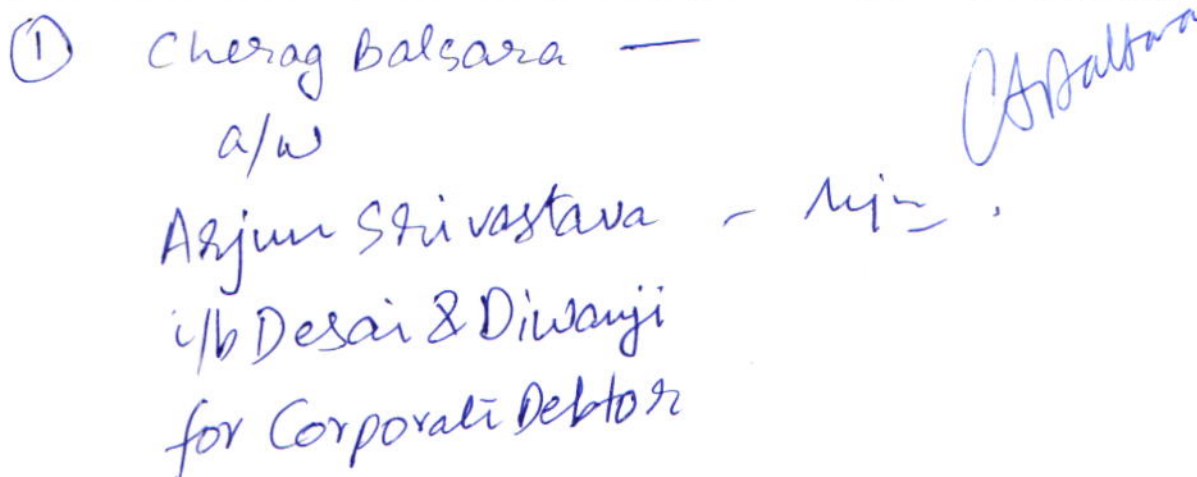 ① Cherag Balsara —
a/w
Arjun Srivastava -
i/b Desai & Diwanji
for Corporate Debtor